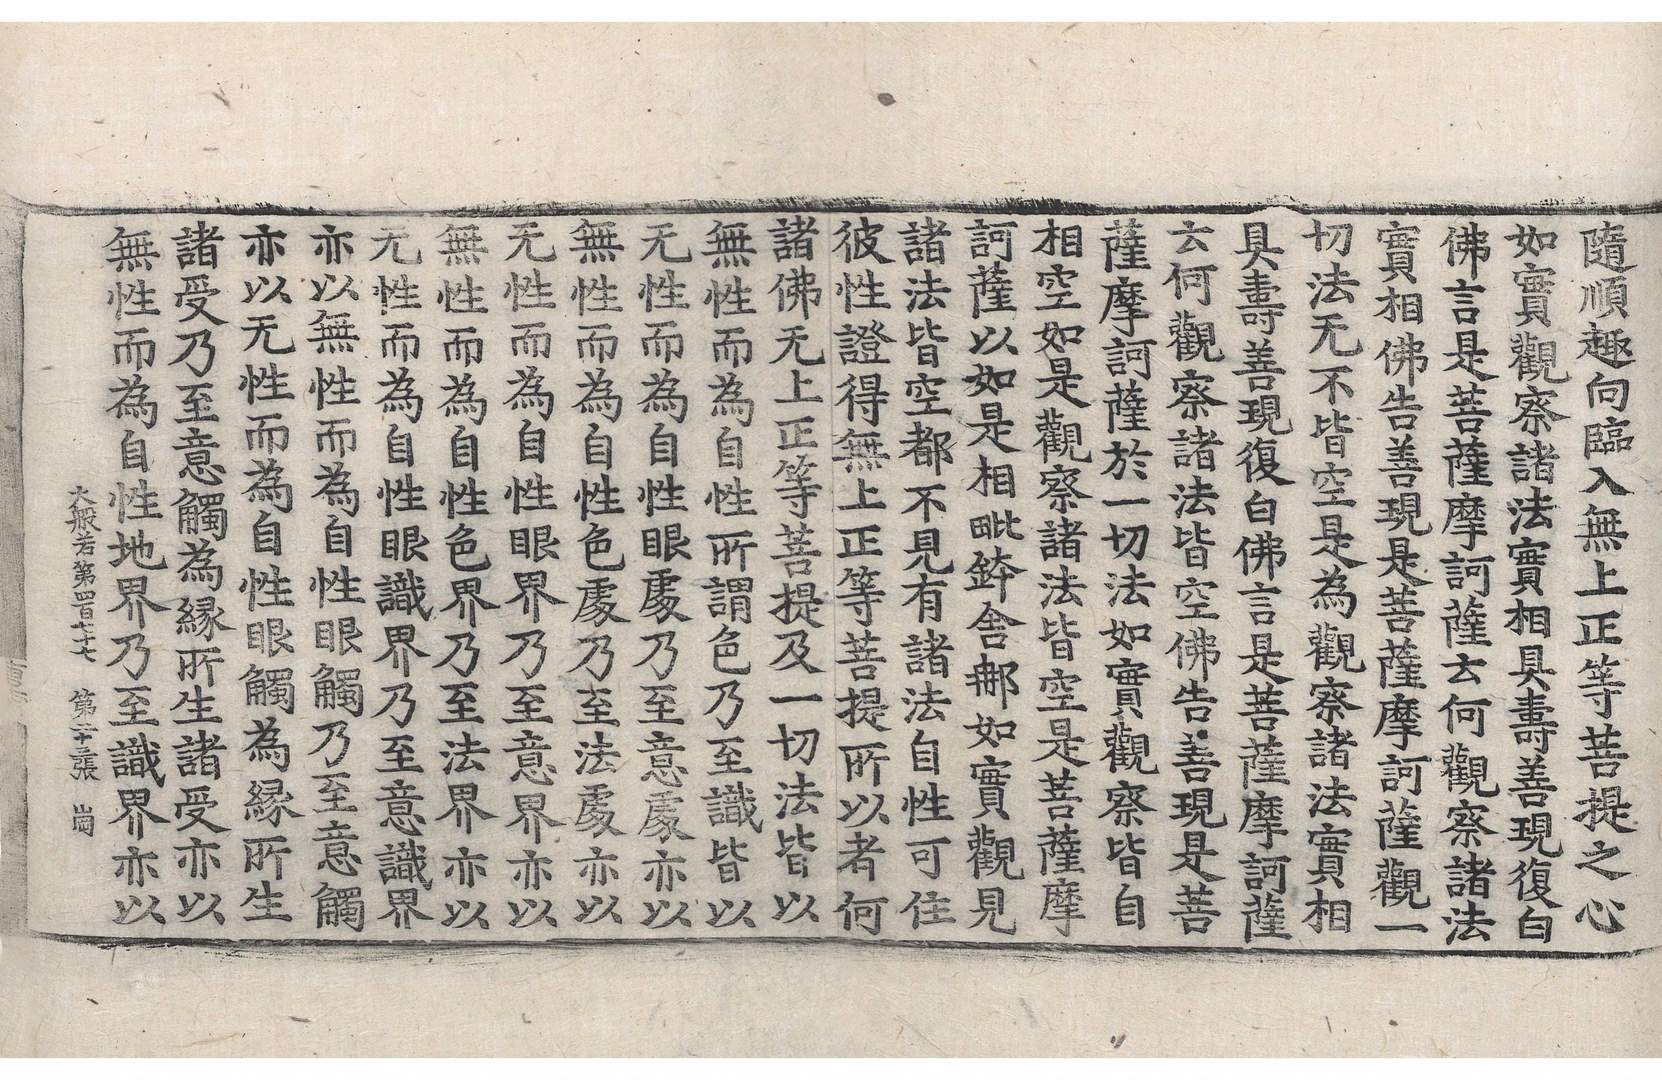 隨順趣向臨入無上正等菩提之心
如實觀察諸法實相具壽善現復白
佛言是菩薩摩訶薩云何觀察諸法
實相佛告善現是菩薩摩訶薩觀一
切法无不皆空是為觀察諸法實相
具壽善現復白佛言是菩薩摩訶薩
云何觀察諸法皆空佛告善現是菩
薩摩訶薩於一切法如實觀察皆自
相空如是觀察諸法皆空是菩薩摩
訶薩以如是相毗鉢舍那如實觀見
諸法皆空都不見有諸法自性可住
彼性證得無上正等菩提所以者何
諸佛无上正等菩提及一切法皆以
無性而為自性所謂色乃至識皆以
无性而為自性眼處乃至意處亦以
無性而為自性色處乃至法處亦以
无性而為自性眼界乃至意界亦以
無性而為自性色界乃至法界亦以
无性而為自性眼識界乃至意識界
亦以無性而為自性眼觸乃至意觸
亦以无性而為自性眼觸為緣所生
諸受乃至意觸為緣所生諸受亦以
無性而為自性地界乃至識界亦以
大般若第四百七十七 第二十三張 崗